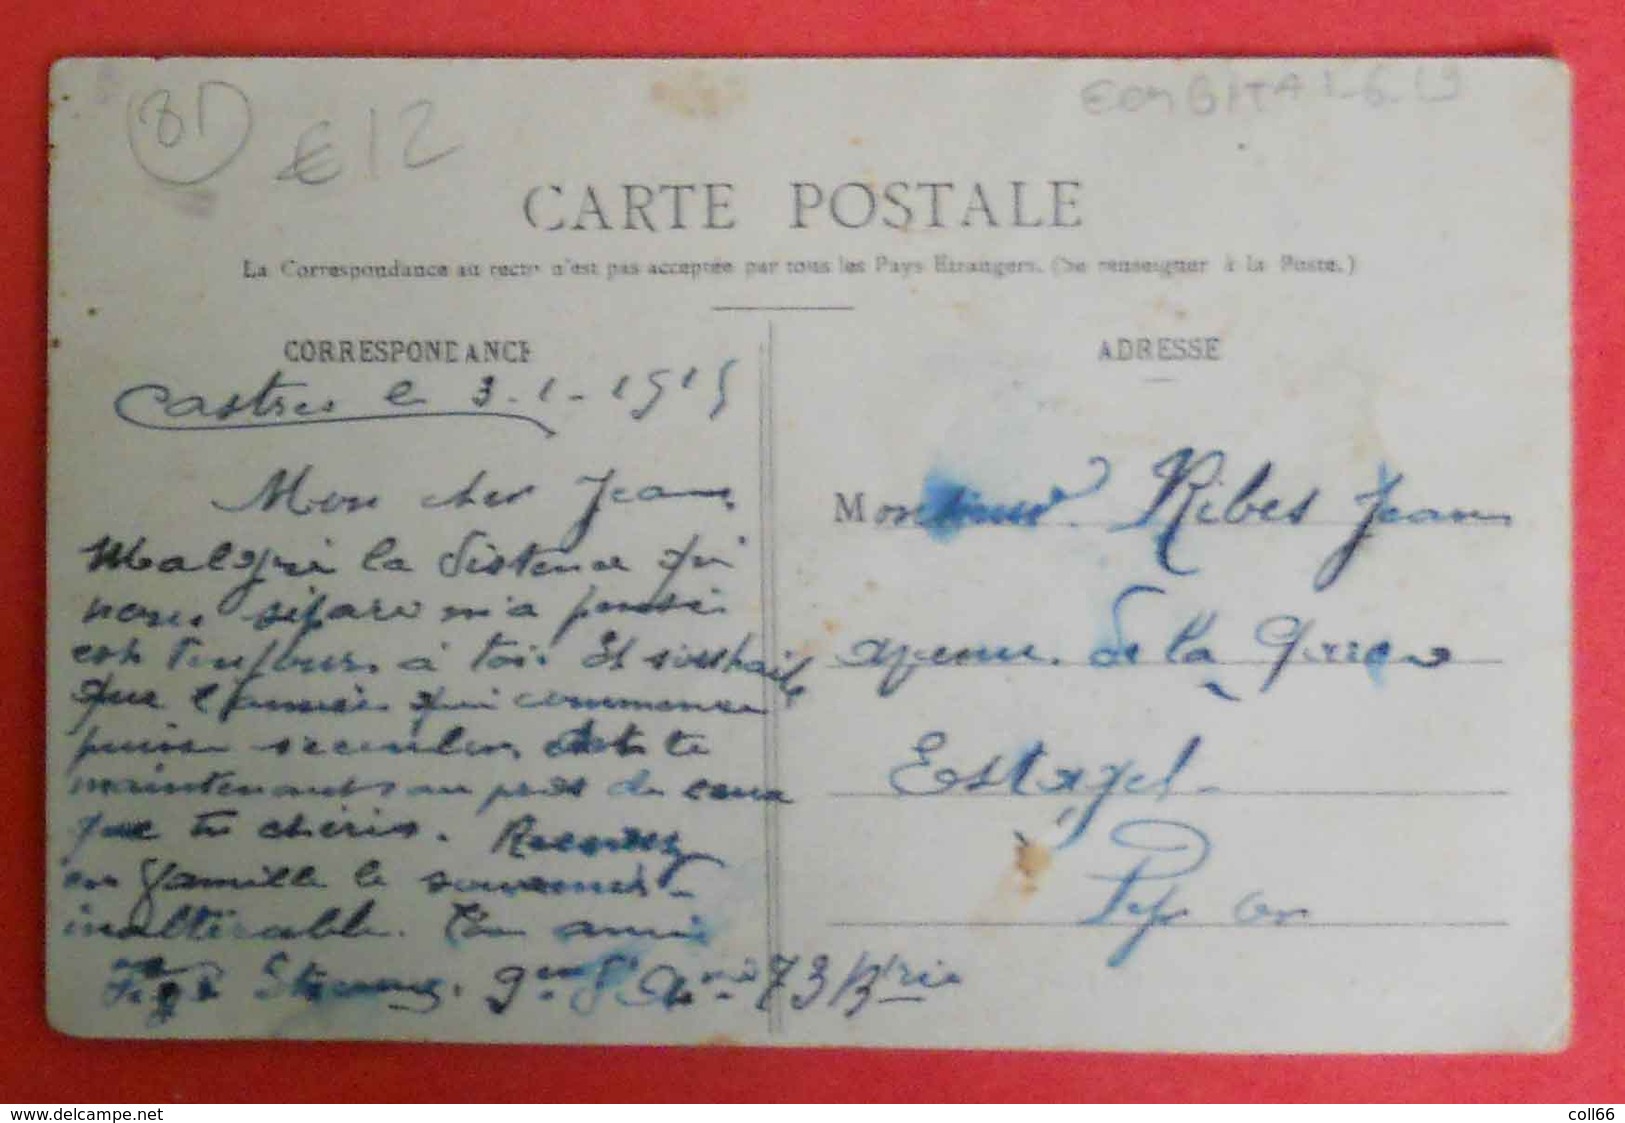 81
€12
CARTE POSTALE
La Correspondance au recto n'est pas acceptée par tous les Pays Etrangers. (Se renseigner à la Poste.)
CORRESPONDANCE
Castres le 3-1-1915
Mon cher Jean
Malgré la distence qui
nous sépare m'a pensé
est toujours à toi. Et souhaite
que l'année qui commence
puisse
maintenant au près de ceux
que tu chéris. Recevez
en famille le souvenir
inaltérable. Ton ami
9me 73 Btrie
ADRESSE
Monsieur Ribes Jean
de la
Estagel
Pyr Or
www.delcampe.net
coll66